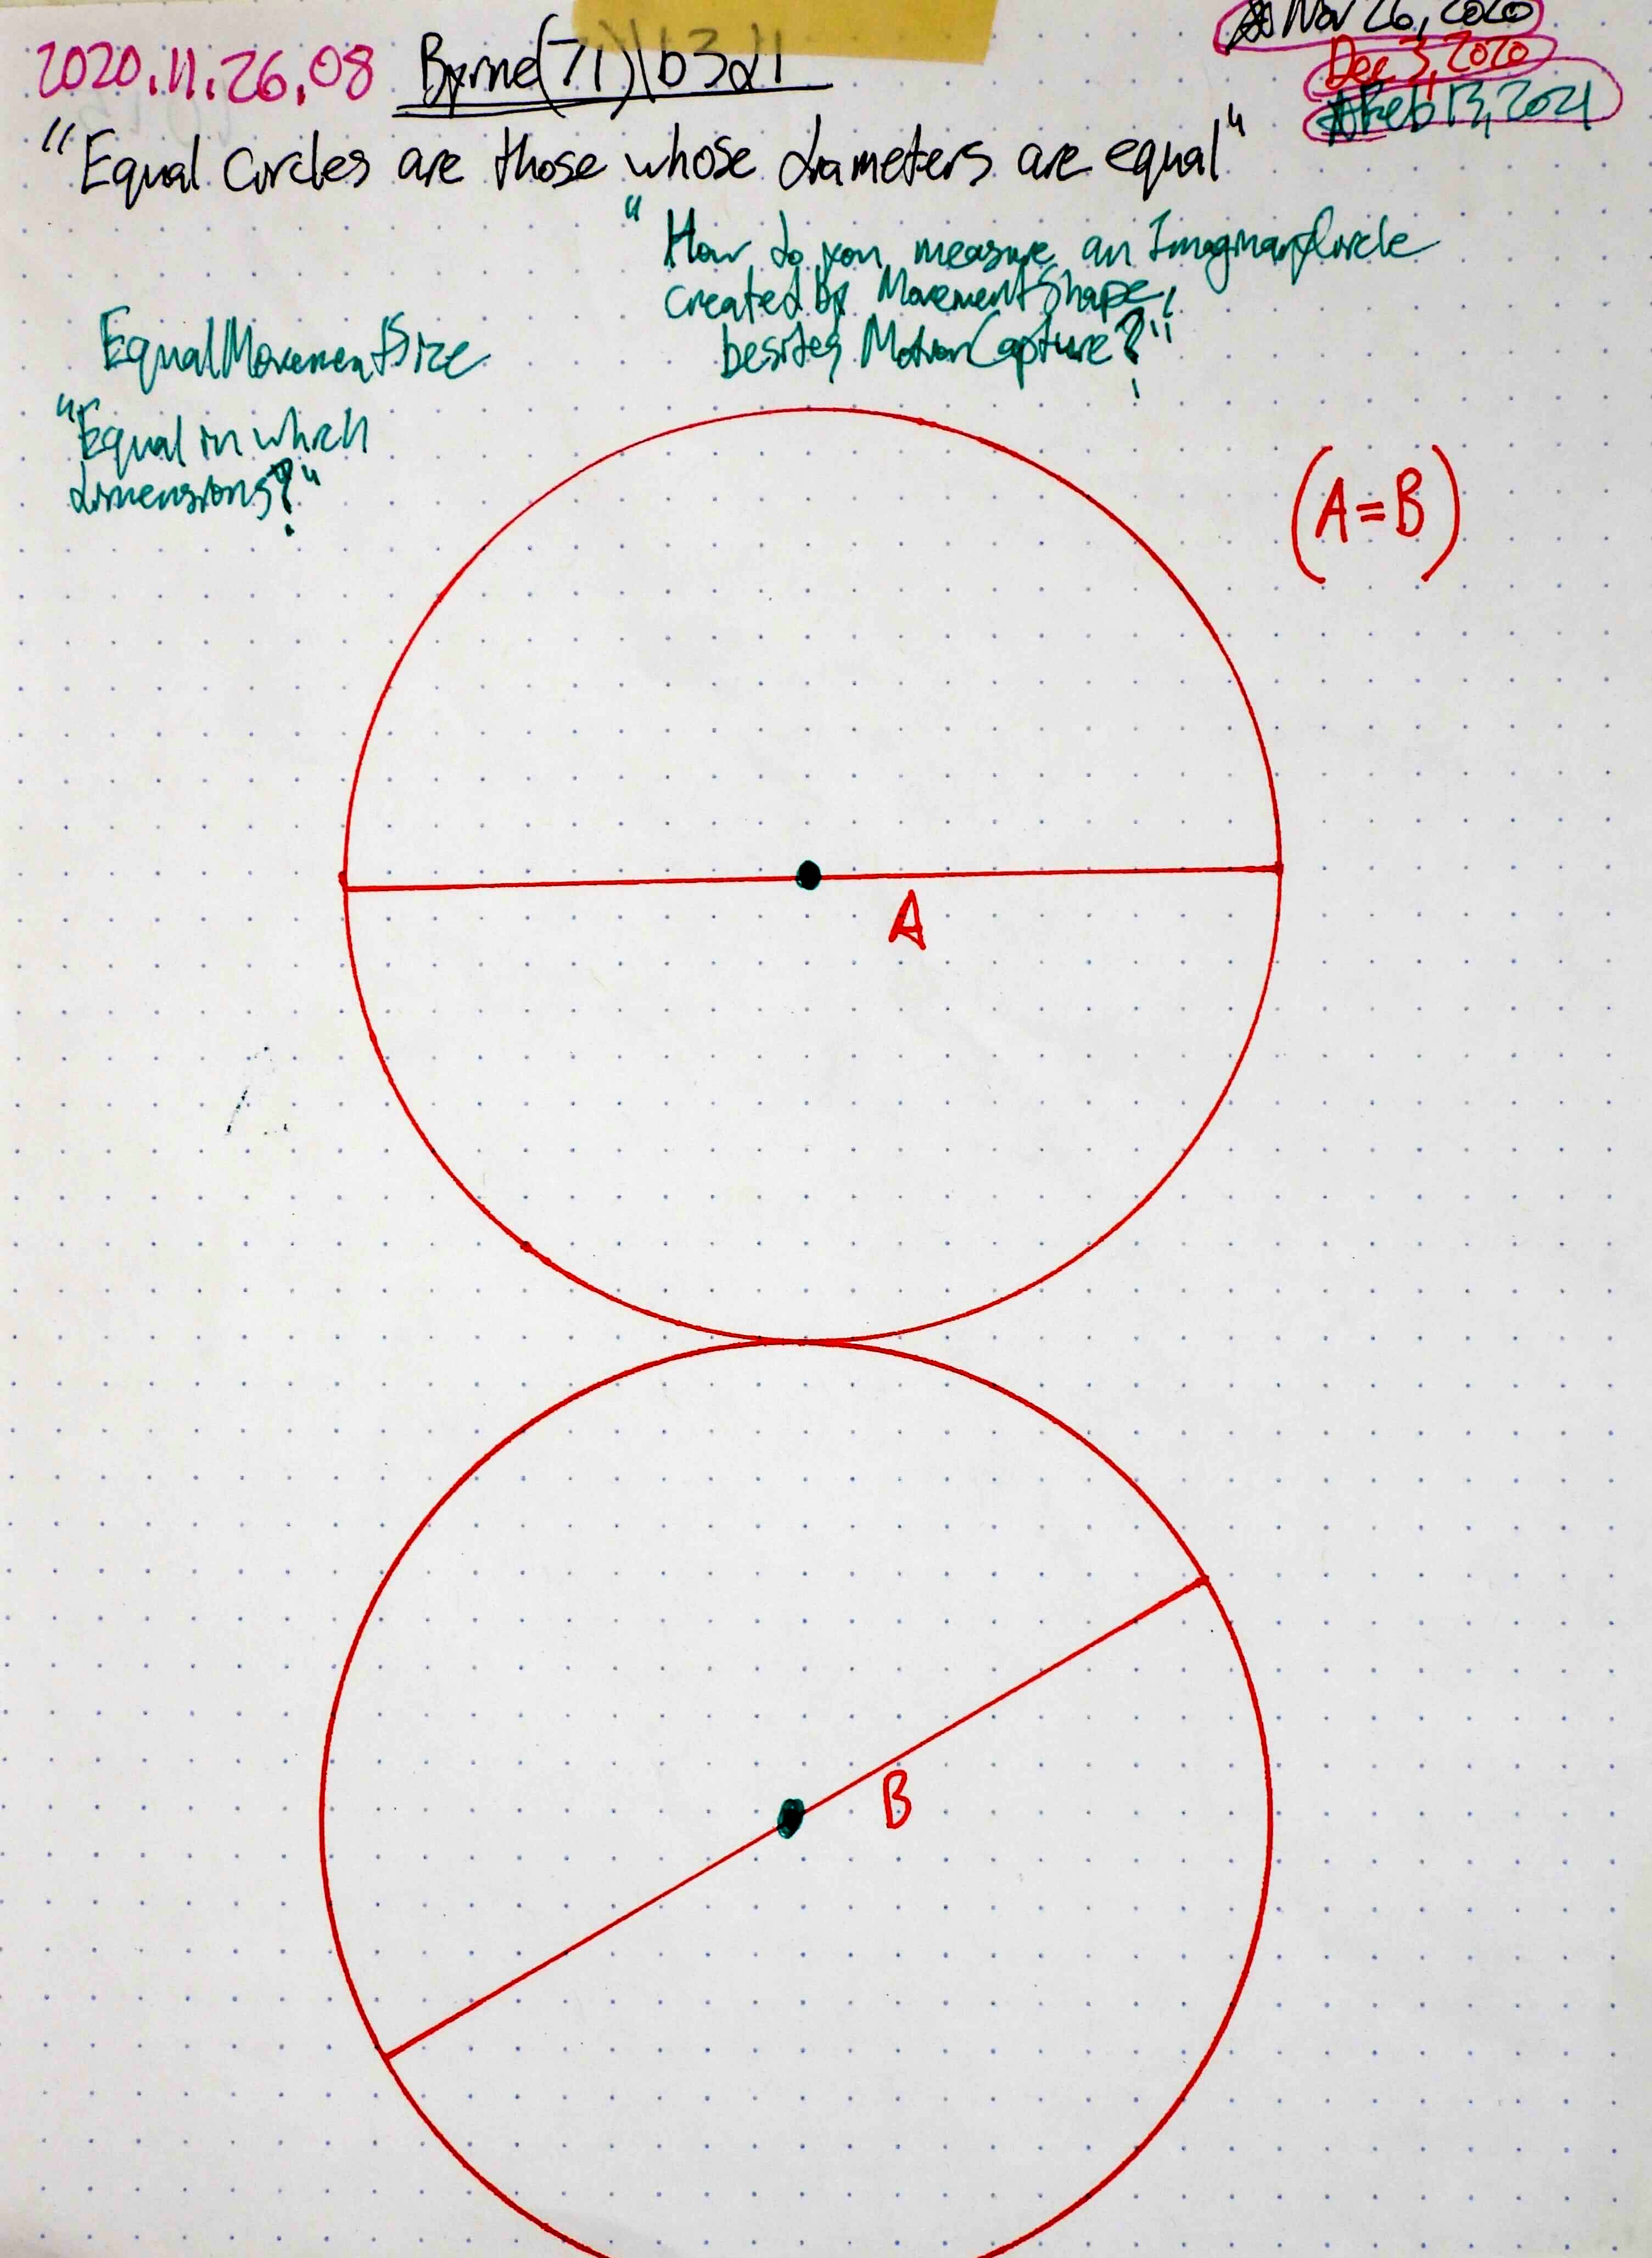 2020.11.26.08 Byrne(71)\b3d11
Nov 26, 2020
Dec 3, 2020
Feb 13, 2021
"Equal Circles are those whose diameters are equal"
"How do you measure an ImaginaryCircle
created by MovementShape,
besides MotionCapture?"
EqualMovementSize
"Equal in which
dimensions?"
(A=B)
A
B